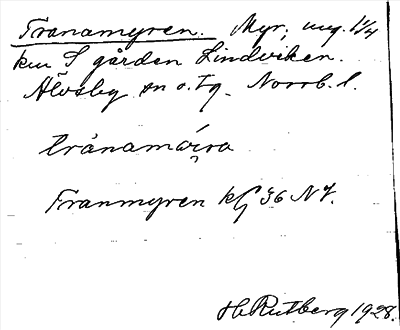 Tranamyren. Myr, ung. 1 1/4
km S gården Lindviken.
Älvsby sn o. tg. Norrb. l.
trånamy̨ra
Tranmyren kfl 36 NV.
H. Rutberg 1928.